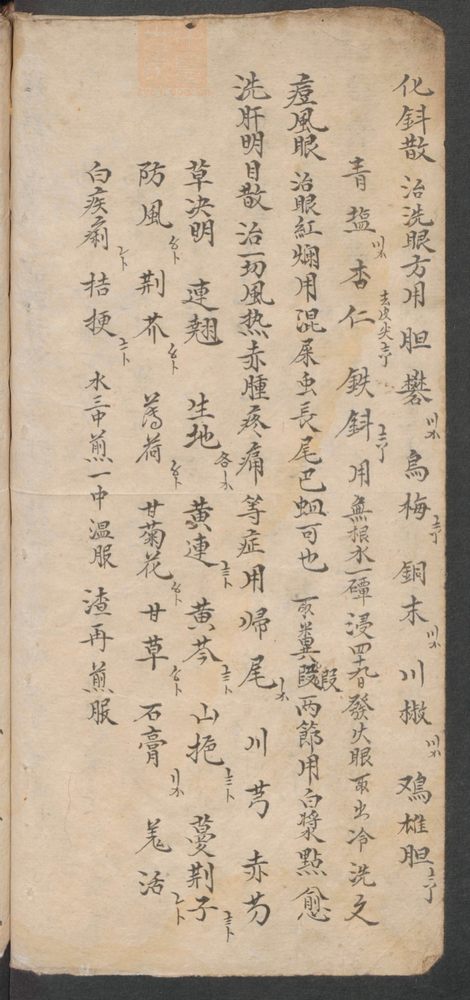 化針散 治洗眼方用 胆礬 烏梅 銅末 川椒 鳮雄胆
青塩 杏仁 去皮尖 鉄針 用無根水一礶浸四十九日發火眼取出冷洗之
痘風眼 治眼紅爛用混屎虫長尾巴蛆可也 取糞 段 兩節用白漿點愈
洗肝明目散 治一切風热赤腫疼痛等症用帰尾 川芎 赤芍
草决明 連翹 生地 各 黄連 黄芩 山梔 蔓荆子
防風 荆芥 薄荷 甘菊花 甘草 石膏 羗活
白疾痢 桔梗 水二中煎一中温服 渣再煎服